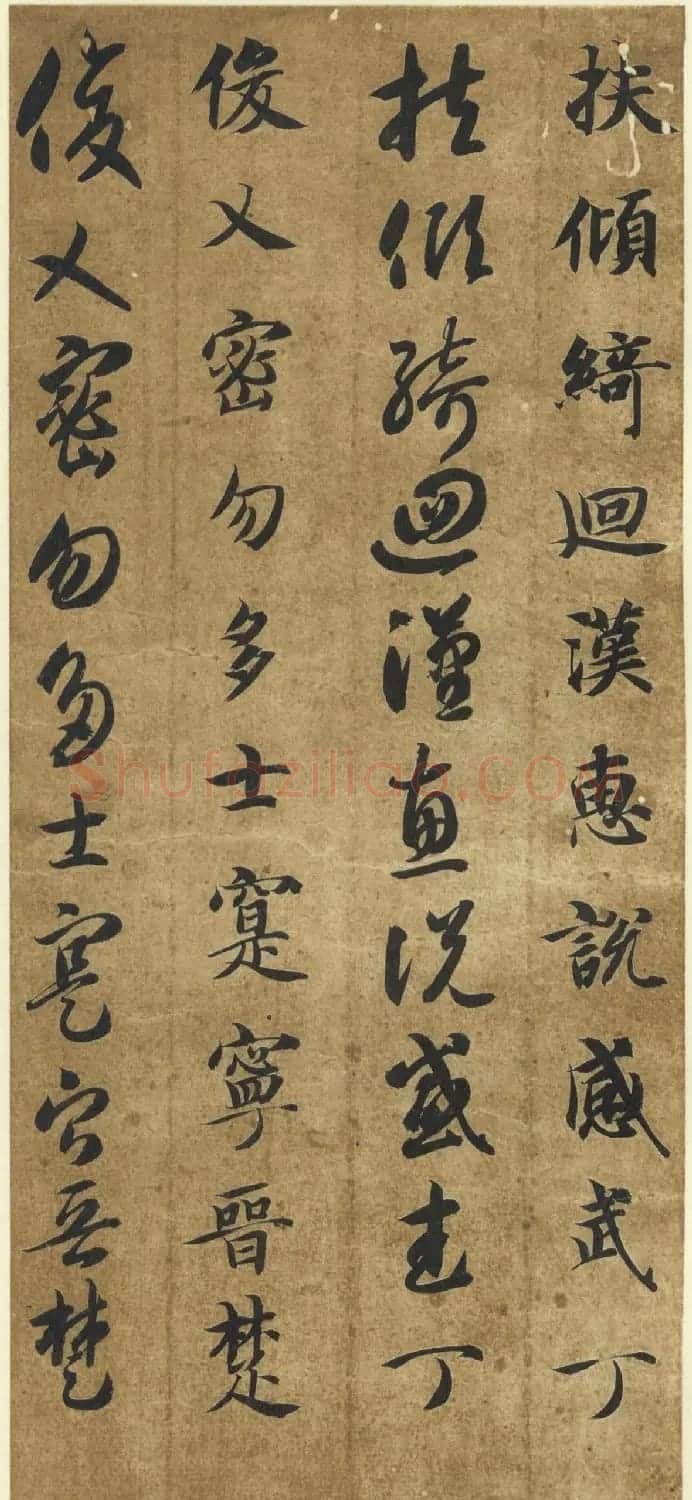 扶傾綺迴漢惠說感武丁
扶傾綺迴漢惠說感武丁
俊乂密勿多士寔寧晉楚
俊乂密勿多士寔寧晉楚
Shufaziliao.COM